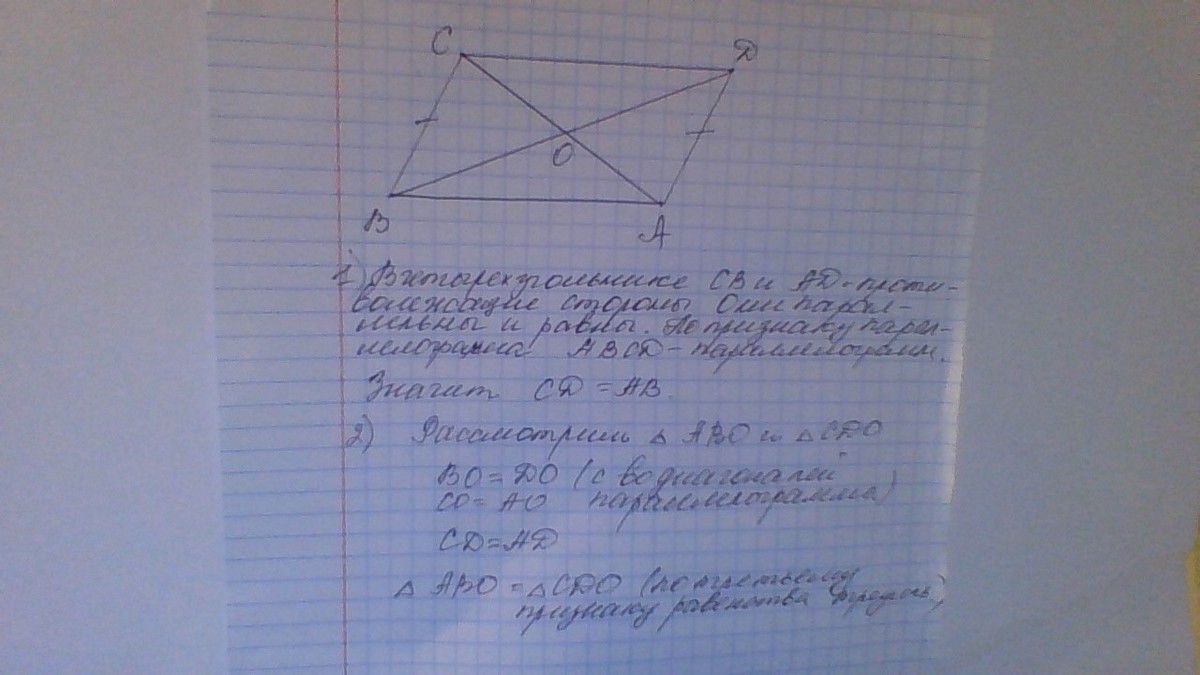 C
D
O
B
A
1) В четырехугольнике CB и AD - проти-
волежащие стороны Они парал-
лельны и равны. По признаку парал-
лелограмма ABCD - параллелограмм.
Значит CD = AB.
2) Рассмотрим △ ABO и △ CDO
BO = DO (с во диагоналей
CO = AO параллелограмма)
CD = AD
△ ABO = △ CDO (по третьему
признаку равенства треугольн)